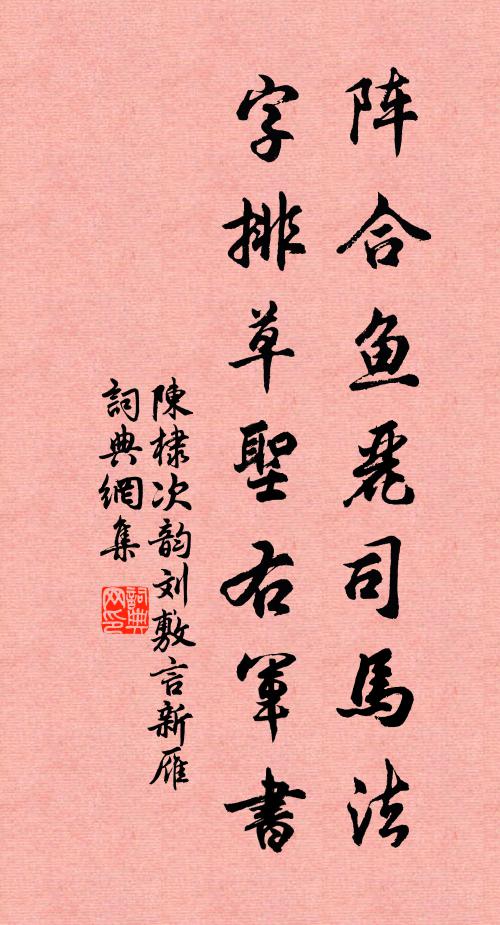 阵合鱼丽司馬法
字排草聖右軍書
陳棣次韵刘敷言新雁
詞典網集
詞典网印